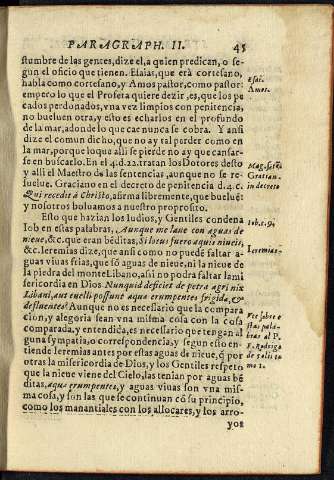 PARAGRAPH. II. 45
stumbre de las gentes, dize el, a quien predican, o se-
gun el oficio que tienen. Esaias, que erà cortesano,
habla como cortesano, y Amos pastor, como pastor:
empero lo que el Profeta quiere dezir, es, que los pe
cados perdonados, vna vez limpios con penitencia,
no bueluen otra, y esto es echarlos en el profundo
de la mar, adonde lo que cae nunca se cobra. Y ansi
dize el comun dicho, que no ay tal perder como en
la mar, porque lo que alli se pierde no ay que cansar-
se en buscarlo. En el 4.d.22. tratan los Dotores desto
y alli el Maestro de las sentencias, aunque no se re-
suelue. Graciano en el decreto de penitencia d.4.c.
Qui recedit à Christo, afirma libremente, que buelue:
y nosotros boluamos a nuestro proposito.
Esto que hazian los Iudios, y Gentiles condena
Iob en estas palabras, Aunque me laue con aguas de
nieue, &c. que eran béditas, Si lotus fuero aquis niueis,
&c. Ieremias dize, que ansi como no puedé faltar a-
guas viuas frias, que só aguas de nieue, ni la nieue de
la piedra del monte Libano, asi no podra faltar la mi
sericordia en Dios Nunquid deficiet de petra agri nix
Libani, aut euelli possunt aquæ erumpentes frigidæ, &
defluentes? Aunque no es necessario que la compara
cion, y alegoria sean vna misma cosa con la cosa
comparada, y entendida, es necessario que tengan al
guna sympatia, o correspondencia, y segun esto en-
tiende Ieremias antes por estas aguas de nieue, q̃ por
otras la misericordia de Dios, y los Gentiles respeto
que la nieue viene del Cielo, las tenian por aguas bé
ditas, aquæ erumpentes, y aguas viuas son vna mis-
ma cosa, y son las que se continuan có su principio,
como los manantiales con los
yos
Esai.
Amos.
Gratian.
in decreto
Iob.c.9.
Ieremias